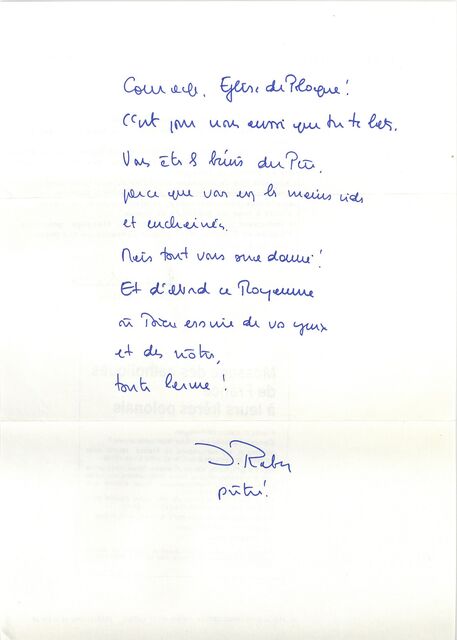 Courage, Eglise de Pologne!
C'est pour nous aussi que tu te bats.
Vous êtes les bénis du Père,
parce que vous avez les mains vides
et enchaînées.
Mais tout vous sera donné!
Et d'abord ce Royaume
où Dieu essuie de vos yeux
et des nôtres,
toute larme!
prêtre!